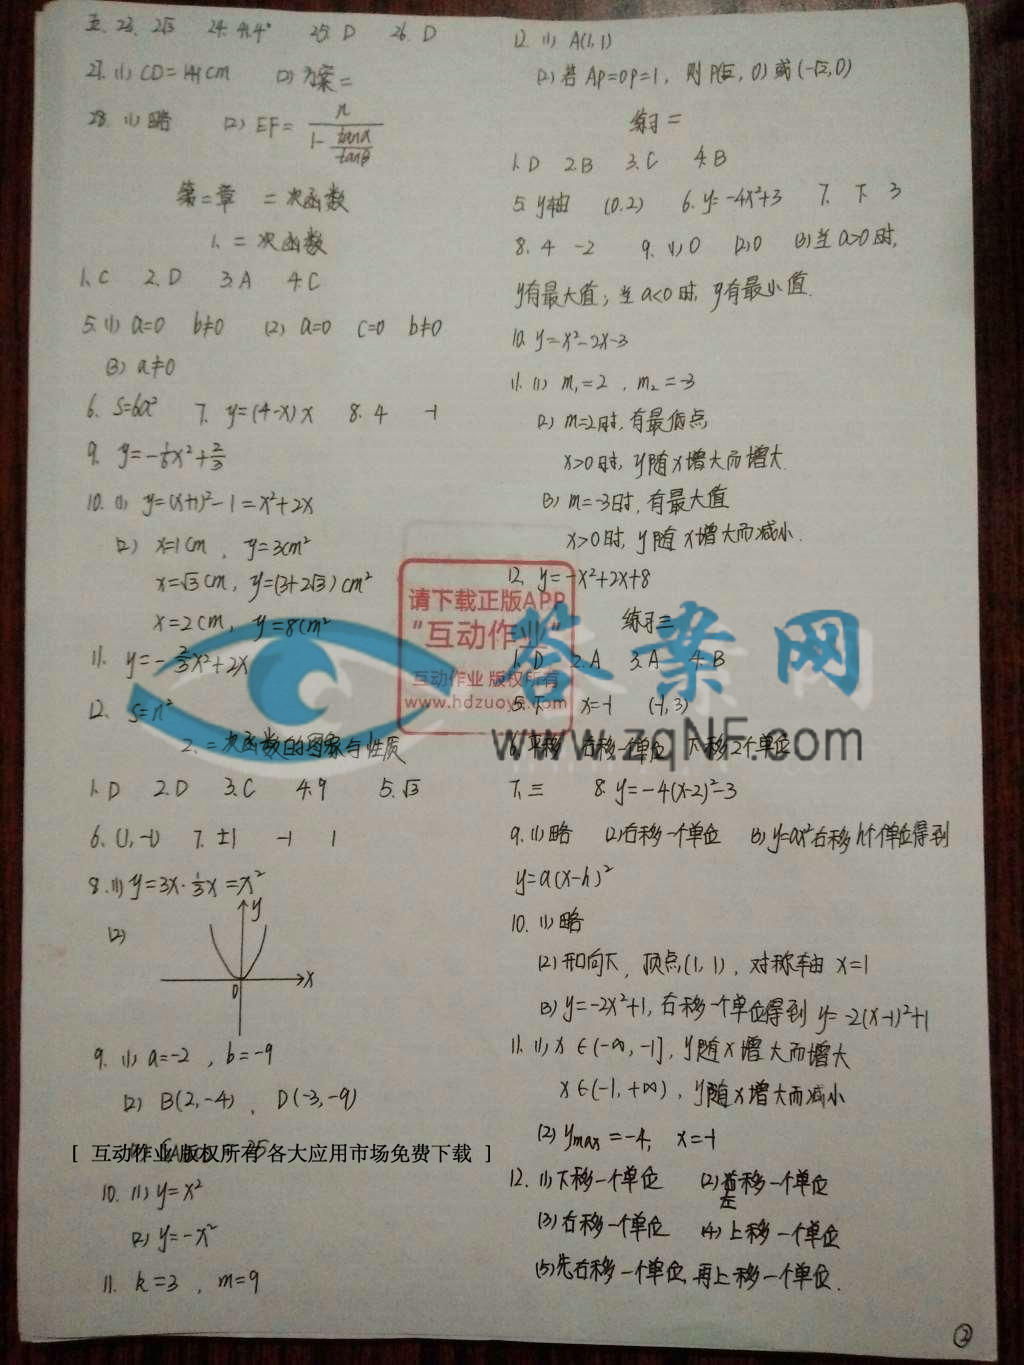 五. 23. 2√3 24. 41.4° 25. D 26. D
27. (1) CD=14cm (2) 方案二
28. (1) 略 (2) EF= n/(1-tanα/tanβ)
第二章 二次函数
1. 二次函数
1. C 2. D 3. A 4. C
5. (1) a=0 b≠0 (2) a=0 c=0 b≠0
(3) a≠0
6. S=6a² 7. y=(4-x)x 8. 4 -1
10. (1) y=(x+1)²-1=x²+2x
(2) x=1cm, y=3cm²
x=√3cm, y=(3+2√3)cm²
x=2cm, y=8cm²
11. y=-2/3x²+2x
12. S=n²
2. 二次函数的图象与性质
1. D 2. D 3. C 4. 9 5. √3
6. (1,-1) 7. ±1 -1 1
8. (1) y=3x·1/3x=x²
(2)
y
x
0
9. (1) a=-2, b=-9
(2) B(2,-4), D(-3,-9)
[ 互动作业 版权所有 各大应用市场免费下载 ]
10. (1) y=x²
(2) y=-x²
11. k=3, m=9
12. (1) A(1,1)
(2) 若AP=OP=1, 则P(√2,0)或(-√2,0)
练习二
1. D 2. B 3. C 4. B
5. y轴 (0.2) 6. y=-4x²+3 7. 下 3
8. 4 -2 9. (1) 0 (2) 0 (3) 当a>0时,
y有最大值; 当a<0时, y有最小值.
10. y=x²-2x-3
11. (1) m₁=2, m₂=-3
(2) m=2时, 有最低点
x>0时, y随x增大而增大.
(3) m=-3时, 有最大值
x>0时, y随x增大而减小.
12. y=-x²+2x+8
练习三
1. D 2. A 3. A 4. B
5. 下 x=-1 (-1,3)
6. 平移 右移一个单位 下移2个单位
7. 三 8. y=-4(x-2)²-3
9. (1) 略 (2) 右移一个单位 (3) y=ax²右移h个单位得到
y=a(x-h)²
10. (1) 略
(2) 开口向下, 顶点(1,1), 对称轴 x=1
(3) y=-2x²+1, 右移一个单位得到 y=-2(x-1)²+1
11. (1) x∈(-∞,-1], y随x增大而增大
x∈(-1,+∞), y随x增大而减小
(2) ymax=-4, x=-1
12. (1) 下移一个单位 (2) 左移一个单位
(3) 右移一个单位 (4) 上移一个单位
(5) 先右移一个单位, 再上移一个单位.
②
请下载正版APP
"互动作业"
互动作业 版权所有
www.hdzuoye.com
答案网
www.zqNF.com